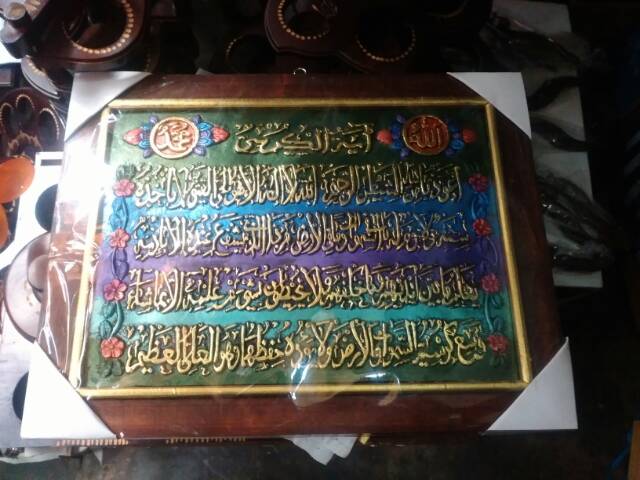 الله
آية الكرسي
محمد
أعوذ بالله من الشيطان الرجيم الله لا إله إلا هو الحي القيوم لا تأخذه
سنة ولا نوم له ما في السموات وما في الأرض من ذا الذي يشفع عنده إلا بإذنه
يعلم ما بين أيديهم وما خلفهم ولا يحيطون بشيء من علمه إلا بما شاء
وسع كرسيه السموات والأرض ولا يؤده حفظهما وهو العلي العظيم